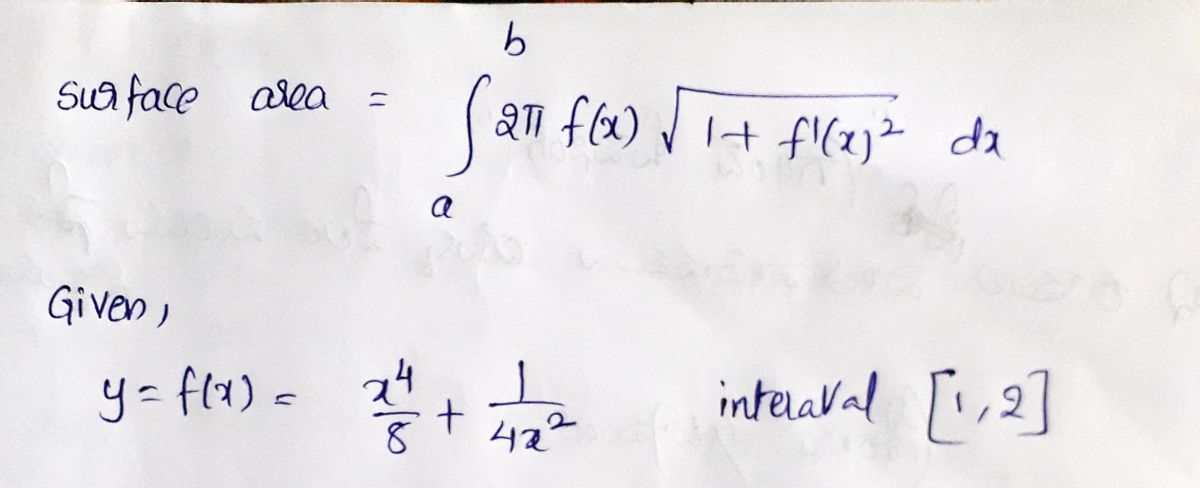 surface area = ∫ₐᵇ 2π f(x) √(1 + f'(x)²) dx
Given,
y = f(x) = x⁴/8 + 1/4x² interaval [1,2]